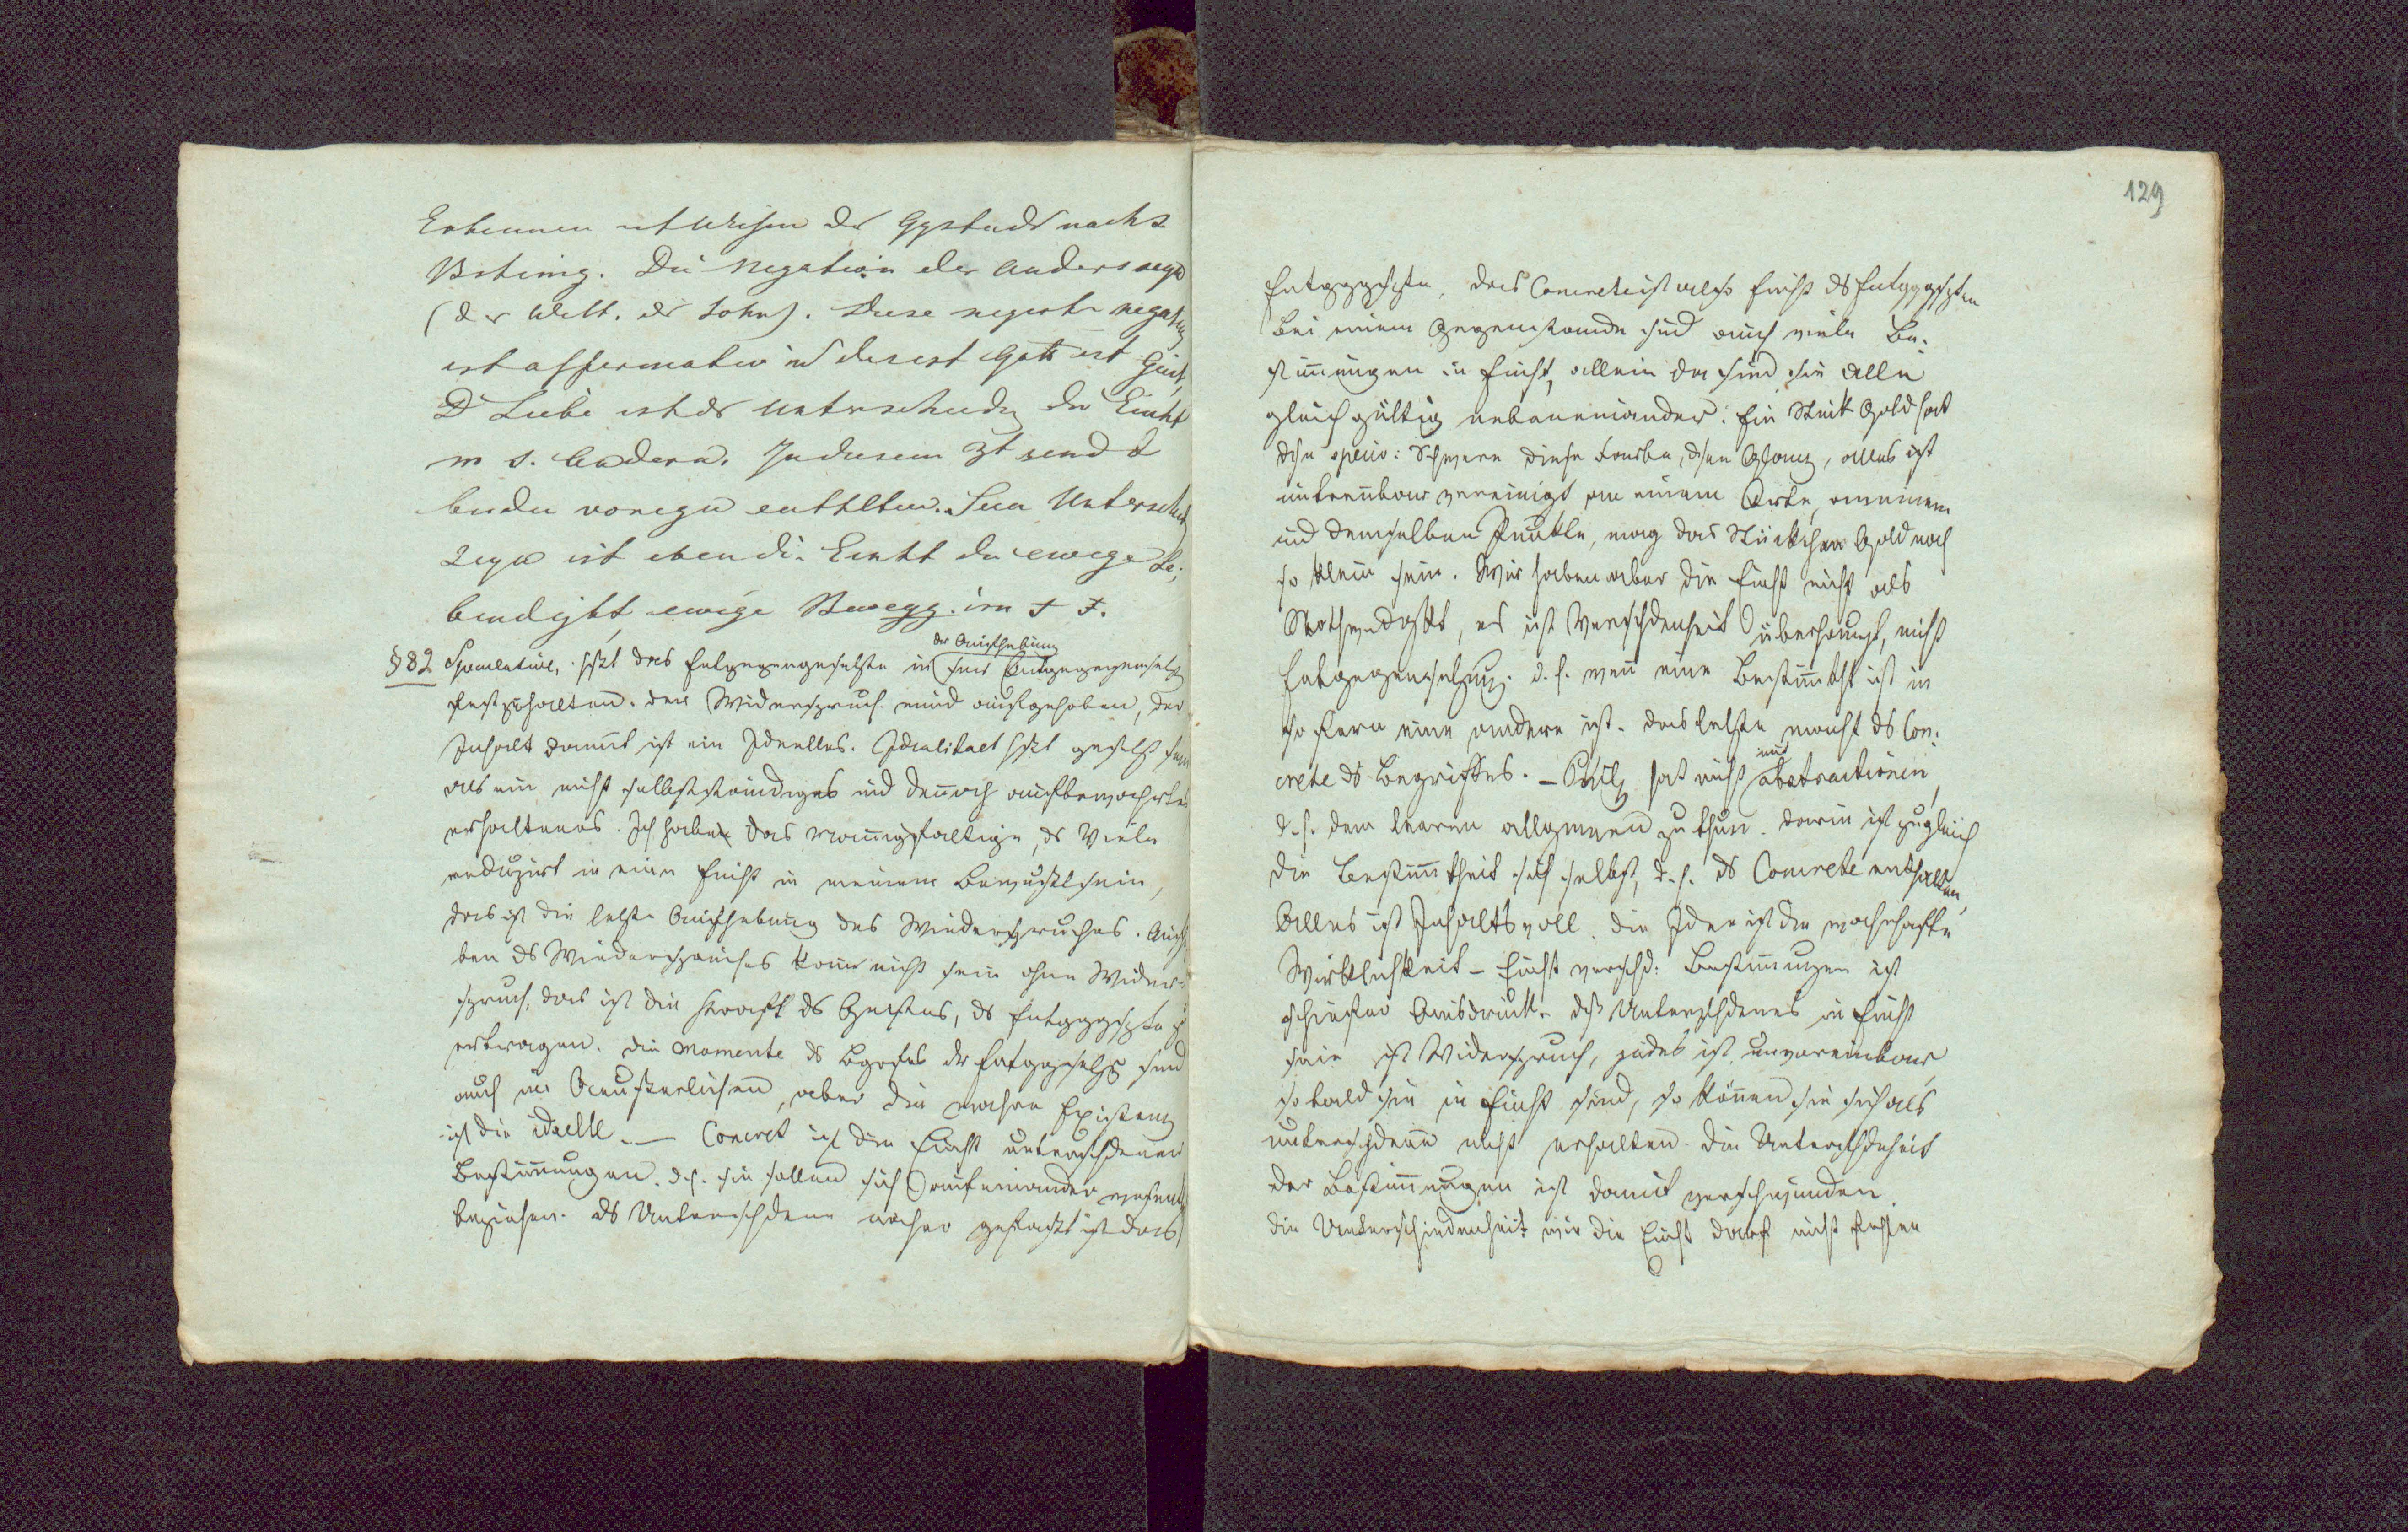 Erkennen ist Wissen der Ggstnds nach s
Bstimg. Die Negation der Andersseyn
(der Welt. der Sohn). Diese negirte Negation
ist affirmativ und dieses ist Gott ist Geist,
D Liebe ist der Unterschieden der Einht
m s. Andern. In diesem 3t sind d
beiden vorigen enthlten. Sein Unterschied
Seyn ist eben di. Einht die ewige Le¬
bendigkt ewige Bewegg. im
der Aufhebung
§ 82 Speculative, hßt das Entgegengesetzte in seiner Entgegengesetzg
festzuhalten. der Widerspruch wird aufgehoben, der
Inhalt damit ist ein Ideelles. Idealitaet hßt gesetzt sein
als ein nicht selbstständiges und dennoch aufbewahrtes
erhaltenes. Ich habe das Mannigfaltige, ds Viele
reduzirt in eine Einht in meinem Bewußtsein,
das ist die letzte Aufhebung des Wiederspruches. Aufhe
ben ds Wiederspruches kann nicht sein ohne Wider¬
spruch, das ist die Kraft ds Geistes, ds Entgggsetzte z
ertragen. die Momente ds Bgrfes der Entgggesetzg sind
auch im Aeußerlichen, aber die wahre Existenz
ist die ideelle. — Concret ist die Einht unterschdener
Bestimmungen. d.h. sie sollen sich aufeinander wesentl
beziehen. ds Unterschdene näher gefaßt ist das
129
Entgggsetzte, das Concrete ist also Einht ds Entgggsetzten
Bei einem Gegenstande sind auch viele Be¬
stimmungen in Einht, allein da sind sie alle
gleichgültig nebeneinander. Ein Stück Gold hat
diese specif: Schwere diese Farbe, dsen Glanz, alles ist
untrennbar vereinigt an einem Orte, an einem
und demselben Punkte, mag das Stückchen Gold noch
so klein sein. Wir haben aber die Einht nicht als
Nothwendigkt, es ist Verschdenheit überhaupt, nicht
Entgegensetzung. d.h. wenn eine Bestimmtht ist in
so fern eine andere ist. das letzte macht ds Con¬
nur
crete ds Begriffes. – Philos hat nicht Abstractionen,
d.h. dem leeren allgmeinen zu thun. darin ist zugleich
die Bestimmtheit sich selbst, d.h. ds Concrete enthalten,
Alles ist Inhaltsvoll. die Idee ist die wahrhafte
Wirklichkeit – Einht verschd: Bestimmungen ist
schiefer Ausdruck. dß Unterschdenes in Einht
sein ist Widerspruch, jedes ist unvereinbar,
sobald sie in Einht sind, so können sie sich als
unterschdene nicht erhalten. die Unterschdenheit
der Bestimmungen ist damit verschwunden.
die Unterschiedenheit wie die Einht darf nicht fehlen